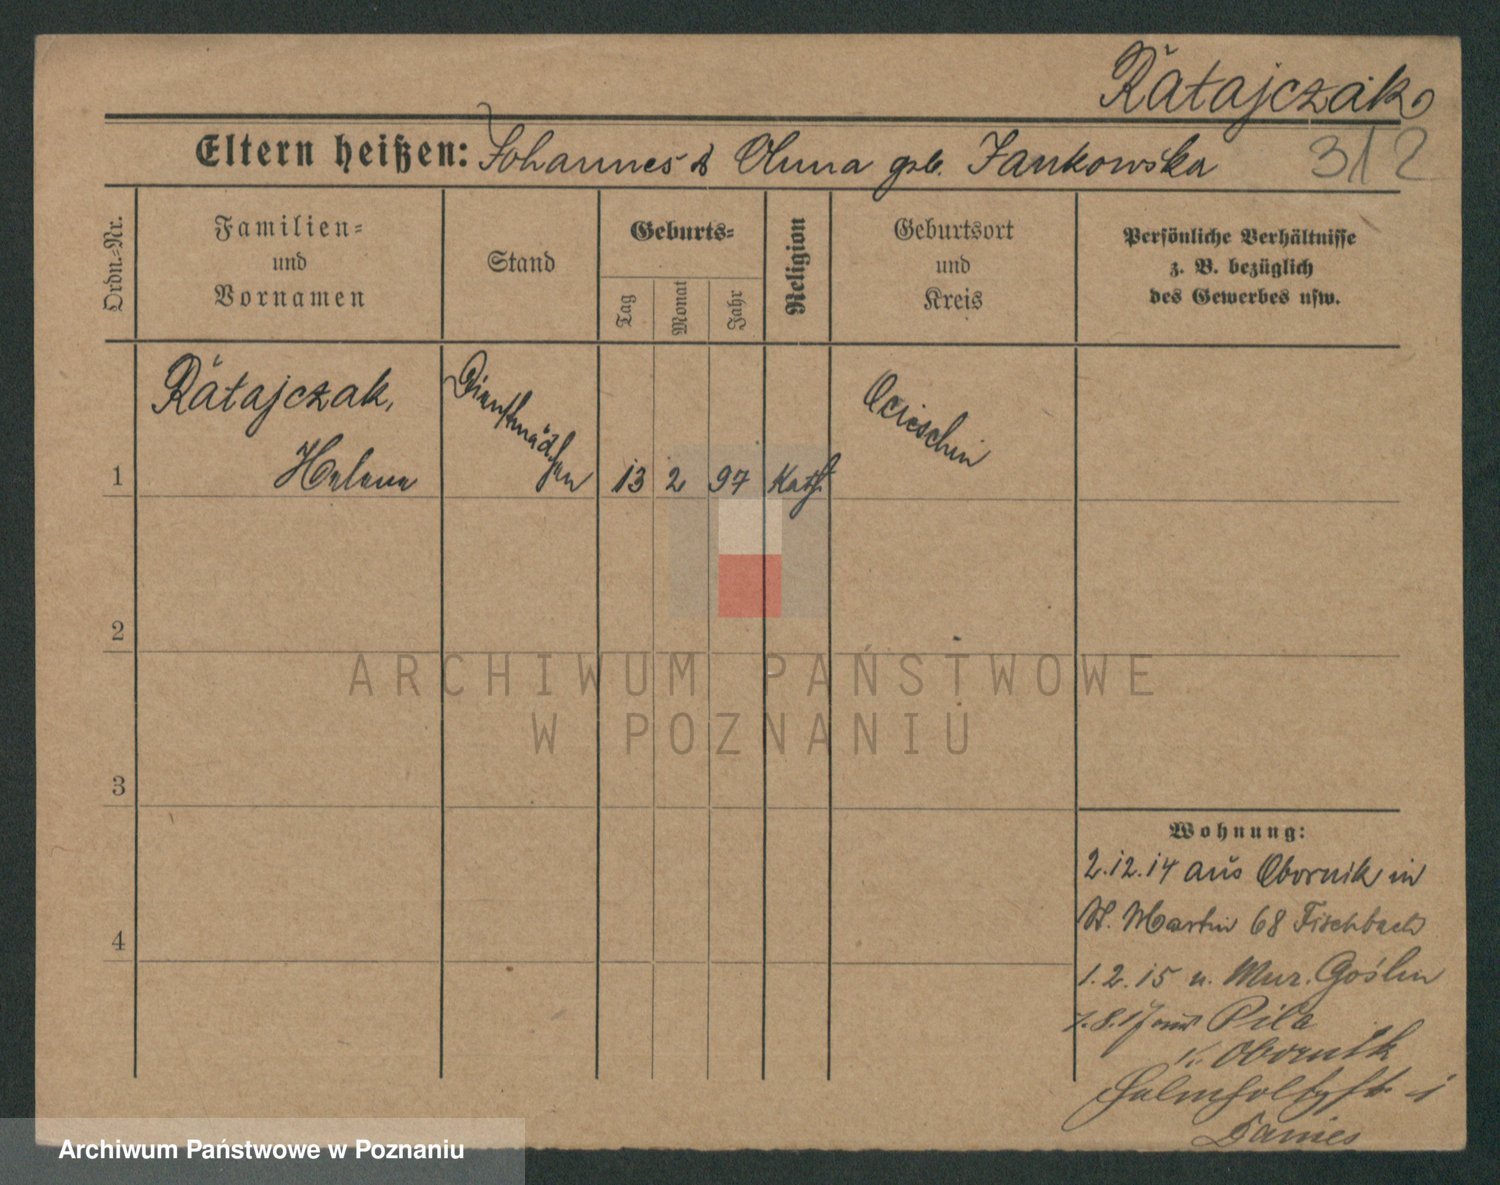 Ratajczak
312
Eltern heißen: Johannes & Anna geb. Jankowska
Ordn.-Nr.
Familien-
und
Vornamen
Stand
Geburts-
Tag
Monat
Jahr
Religion
Geburtsort
und
Kreis
Persönliche Verhältnisse
z. B. bezüglich
des Gewerbes usw.
1
Ratajczak,
Helene
Dienstmädchen
13 2 97 Kath
Ocieschin
2
ARCHIWUM PAŃSTWOWE
W POZNANIU
3
4
Wohnung:
2.12.14 aus Obornik in
St. Martin 68 Fischbach
1.2.15 n. Mur. Goślin
7.8.17 aus Pila
K. Obornik
Helmholtzstr. 1
Archiwum Państwowe w Poznaniu